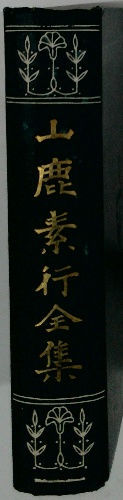 山鹿素行全集